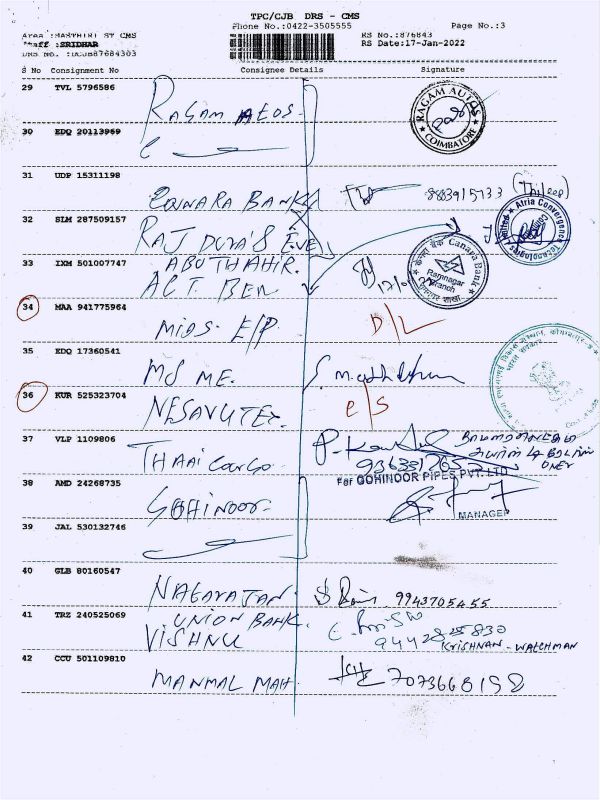 TPC/CJB DRS - CMS
Phone No.:0422-3505555 Page No.:3
Area :MARTHIRI ST CMS RS No.:876843
Staff :SRIDHAR RS Date:17-Jan-2022
DRS No. :DCJB87684303
S No Consignment No Consignee Details Signature
29 TVL 5796586
RAGAM AUTOS
RAGAM AUTOS COIMBATORE
30 EDQ 20113969
31 UDP 15311198
CANARA BANK 8883915733 (Thileep)
32 SLM 287509157
Atria Convergence Technologies Limited
RAJ
33 IXM 501007747
ABUTHAHIR.
केनरा बैंक Canara Bank
Ramnagar Branch
रामनगर शाखा
ACT. BEN
34 MAA 941775964
MIOS. E/P. D/L
35 EDQ 17360541
MS ME.
भारत सरकार
36 KUR 525323704
NESAVUTEX e/s
37 VLP 1109806
THAAI Cargo
For GOHINOOR PIPES PVT. LTD
38 AMD 24268735
GOHINOOR
MANAGER
39 JAL 530132746
40 GLB 80160547
NAGARAJAN. 9943705455
41 TRZ 240525069
UNION BANK.
VISHNU 9442825830
KRISHNAN - WATCHMAN
42 CCU 501109810
MANMAL MAH 7073668158